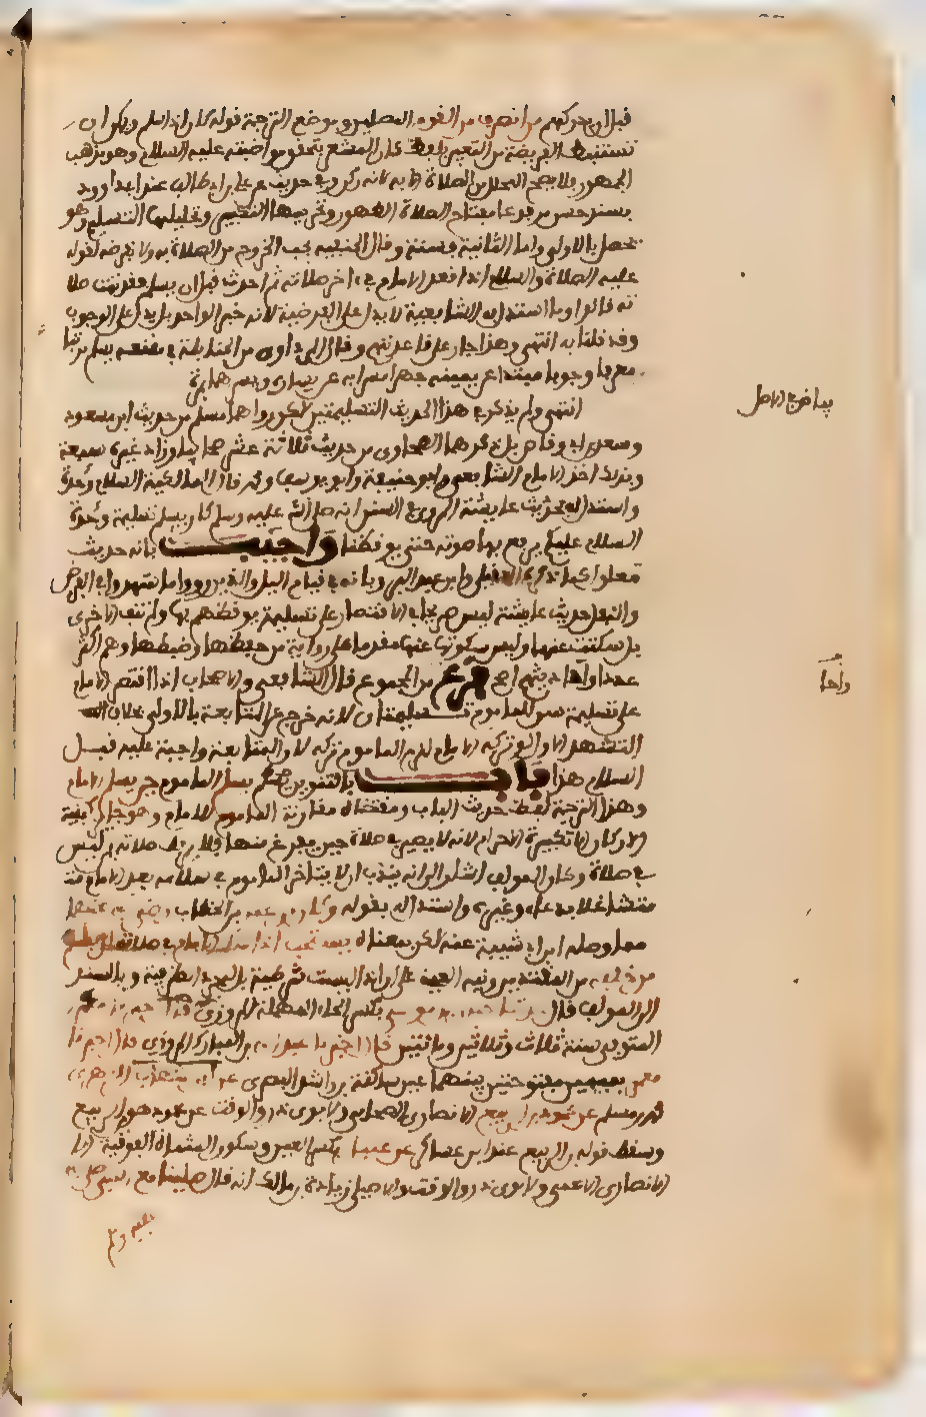 قبل ان يدركهم من انصرف من القوم المصلين وموضع الترجمة قوله كان اذا سلم ويمكن ان
تستنبط الفرضية من التعبير بلفظ كان المشعر بتحقق مواظبته عليه السلام وهو مذهب
الجمهور فلا يصح التحلل من الصلاة الا به لانه ركن وفي حديث علي بن ابي طالب عند ابي داوود
بسند حسن مرفوعا مفتاح الصلاة الطهور وتحريمها التكبير وتحليلها التسليم وهو
يحصل بالاولى واما الثانية فسنة وقال الحنفية يجب الخروج من الصلاة به ولا نفرضه لقوله
عليه الصلاة والسلام اذا قعد الامام في اخر صلاته ثم احدث قبل ان يسلم فقد تمت صلا
ته قالوا وما استدل به الشافعية لا يدل على الفرضية لانه خبر الواحد بل يدل على الوجوب
وقد قلنا به انتهى وهذا جار على قاعدتهم وقال المرداوي من الحنابلة في مقنعه يسلم مرتبا
معرفا وجوبا مبتدئا عن يمينه جهرا مسرا به عن يساره
انتهى ولم يذكر في هذا الحديث التسليمتين لكن رواهما مسلم من حديث ابن مسعود
وسعد بن ابي وقاص بل ذكرهما الطحاوي من حديث ثلاثة عشر صحابيا وزاد غيره سبعة
وبذلك اخذ الامام الشافعي وابو حنيفة وابو يوسف ومحمد وقال المالكية السلام واحدة
واستدل له بحديث عايشة المروي في السنن انه صلى الله عليه وسلم كان يسلم تسليمة واحدة
السلام عليكم يرفع بها صوته حتى يوقظنا واجيب بانه حديث
معلول كما ذكره العقيلي وابن عبد البر وبانه في قيام الليل والذين رووا عنه ما شهدوا في الفرض
والنفل وحديث عايشة ليس صريحا في الاقتصار على تسليمة يوقظهم بها ولم تنف الاخرى
بل سكتت عنها وليس سكوتها عنها مقدما على رواية من حفظها وضبطها وهم اكثر
عددا واحاديثهم اصح فرع من المجموع قال الشافعي والاصحاب اذا اقتصر الامام
على تسليمة سن للماموم تسليمتان لانه خرج عن المتابعة بالاولى بخلاف
التشهد الاول لو تركه الامام لزم الماموم تركه لان المتابعة واجبة عليه قبل
السلام هذا باب بالتنوين يسلم الماموم حين يسلم الامام
وهذه الترجمة لفظ حديث الباب ومقتضاه مقارنة الماموم للامام وهو جائز كبقية
الاركان الا تكبيرة الاحرام لانه لا يصير في صلاة حتى يفرغ منها فلا يربط صلاته بمن ليس
في صلاة وكان المولف اشار الى انه يندب ان لا يتاخر الماموم في سلامه بعد الامام مت
متشاغلا بدعاء وغيره واستدل له بقوله وكان ابن عمر بن الخطاب رضي الله عنهما
مما وصله ابن ابي شيبة عنه لكن بمعناه يستحب اذا سلم الامام ان يسلم
من خلفه من المقتدين وبه
الى المولف قال حدثنا حبان بن موسى بكسر الحاء المهملة المروزي قال اخبرنا
المتوفى سنة ثلاث وثلاثين ومائتين قال اخبرنا عبد الله بن المبارك المروزي قال اخبرنا
معمر بميمين مفتوحتين بينهما عين ساكنة بن راشد البصري عن ابن شهاب الزهري
محمد بن مسلم عن محمود بن الربيع الانصاري الصحابي ولابوي ذر والوقت عن محمود هو ابن الربيع
وسقط قوله بن الربيع عند ابن عساكر عن عتبان بكسر العين وسكون المثناة الفوقية
الانصاري الاعمى ولابوي ذر والوقت والاصيلي زيادة بن مالك انه قال صلينا مع النبي صلى الله
عليه وسلم
بياض في الاصل